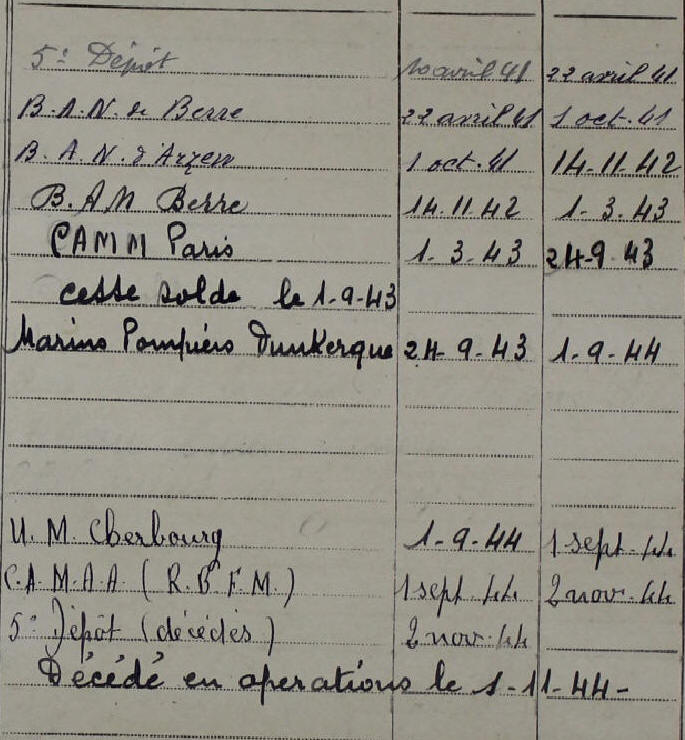 5e Dépôt 10 avril 41 22 avril 41
B.A.N. de Berre 22 avril 41 1 oct. 41
B.A.N. d'Arzew 1 oct. 41 14-11-42
B.A.N Berre 14.11.42 1-3.43
CAMM Paris 1-3.43 24-9.43
cesse solde le 1-9-43
Marins Pompiers Dunkerque 24-9-43 1-9-44
U.M. Cherbourg 1-9-44 1 sept. 44
C.A.M.A.A (R.B.F.M.) 1 sept. 44 2 nov. 44
5e Dépôt (décédés) 2 nov. 44
Décédé en opérations le 1-11-44-